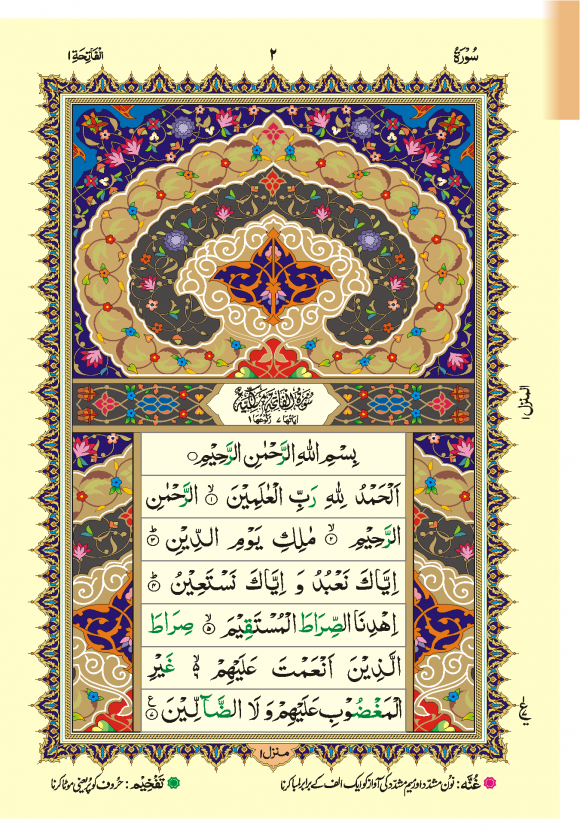 سُوْرَةُ ٢ اَلْفَاتِحَةِ ١
سُوْرَةُ الْفَاتِحَةِ مَكِّيَّةٌ
اٰیَاتُهَا ٧ رُكُوْعُهَا ١
بِسْمِ اللهِ الرَّحْمٰنِ الرَّحِيْمِ ○
اَلْحَمْدُ لِلّٰهِ رَبِّ الْعٰلَمِيْنَ ۙ﴿١﴾ الرَّحْمٰنِ
الرَّحِيْمِ ۙ﴿٢﴾ مٰلِكِ يَوْمِ الدِّيْنِ ؕ﴿٣﴾
اِيَّاكَ نَعْبُدُ وَ اِيَّاكَ نَسْتَعِيْنُ ؕ﴿٤﴾
اِهْدِنَا الصِّرَاطَ الْمُسْتَقِيْمَ ۙ﴿٥﴾ صِرَاطَ
الَّذِيْنَ اَنْعَمْتَ عَلَيْهِمْ ۙ۬﴿٦﴾ غَيْرِ
الْمَغْضُوْبِ عَلَيْهِمْ وَ لَا الضَّآلِّيْنَ ﴿٧﴾ ع
المنزل ١
منزل ١
غُنَّه: نون مشدد اور میم مشدد کی آواز کو ایک الف کے برابر لمبا کرنا
تَفْخِيْم: حروف کو پُر یعنی موٹا کرنا